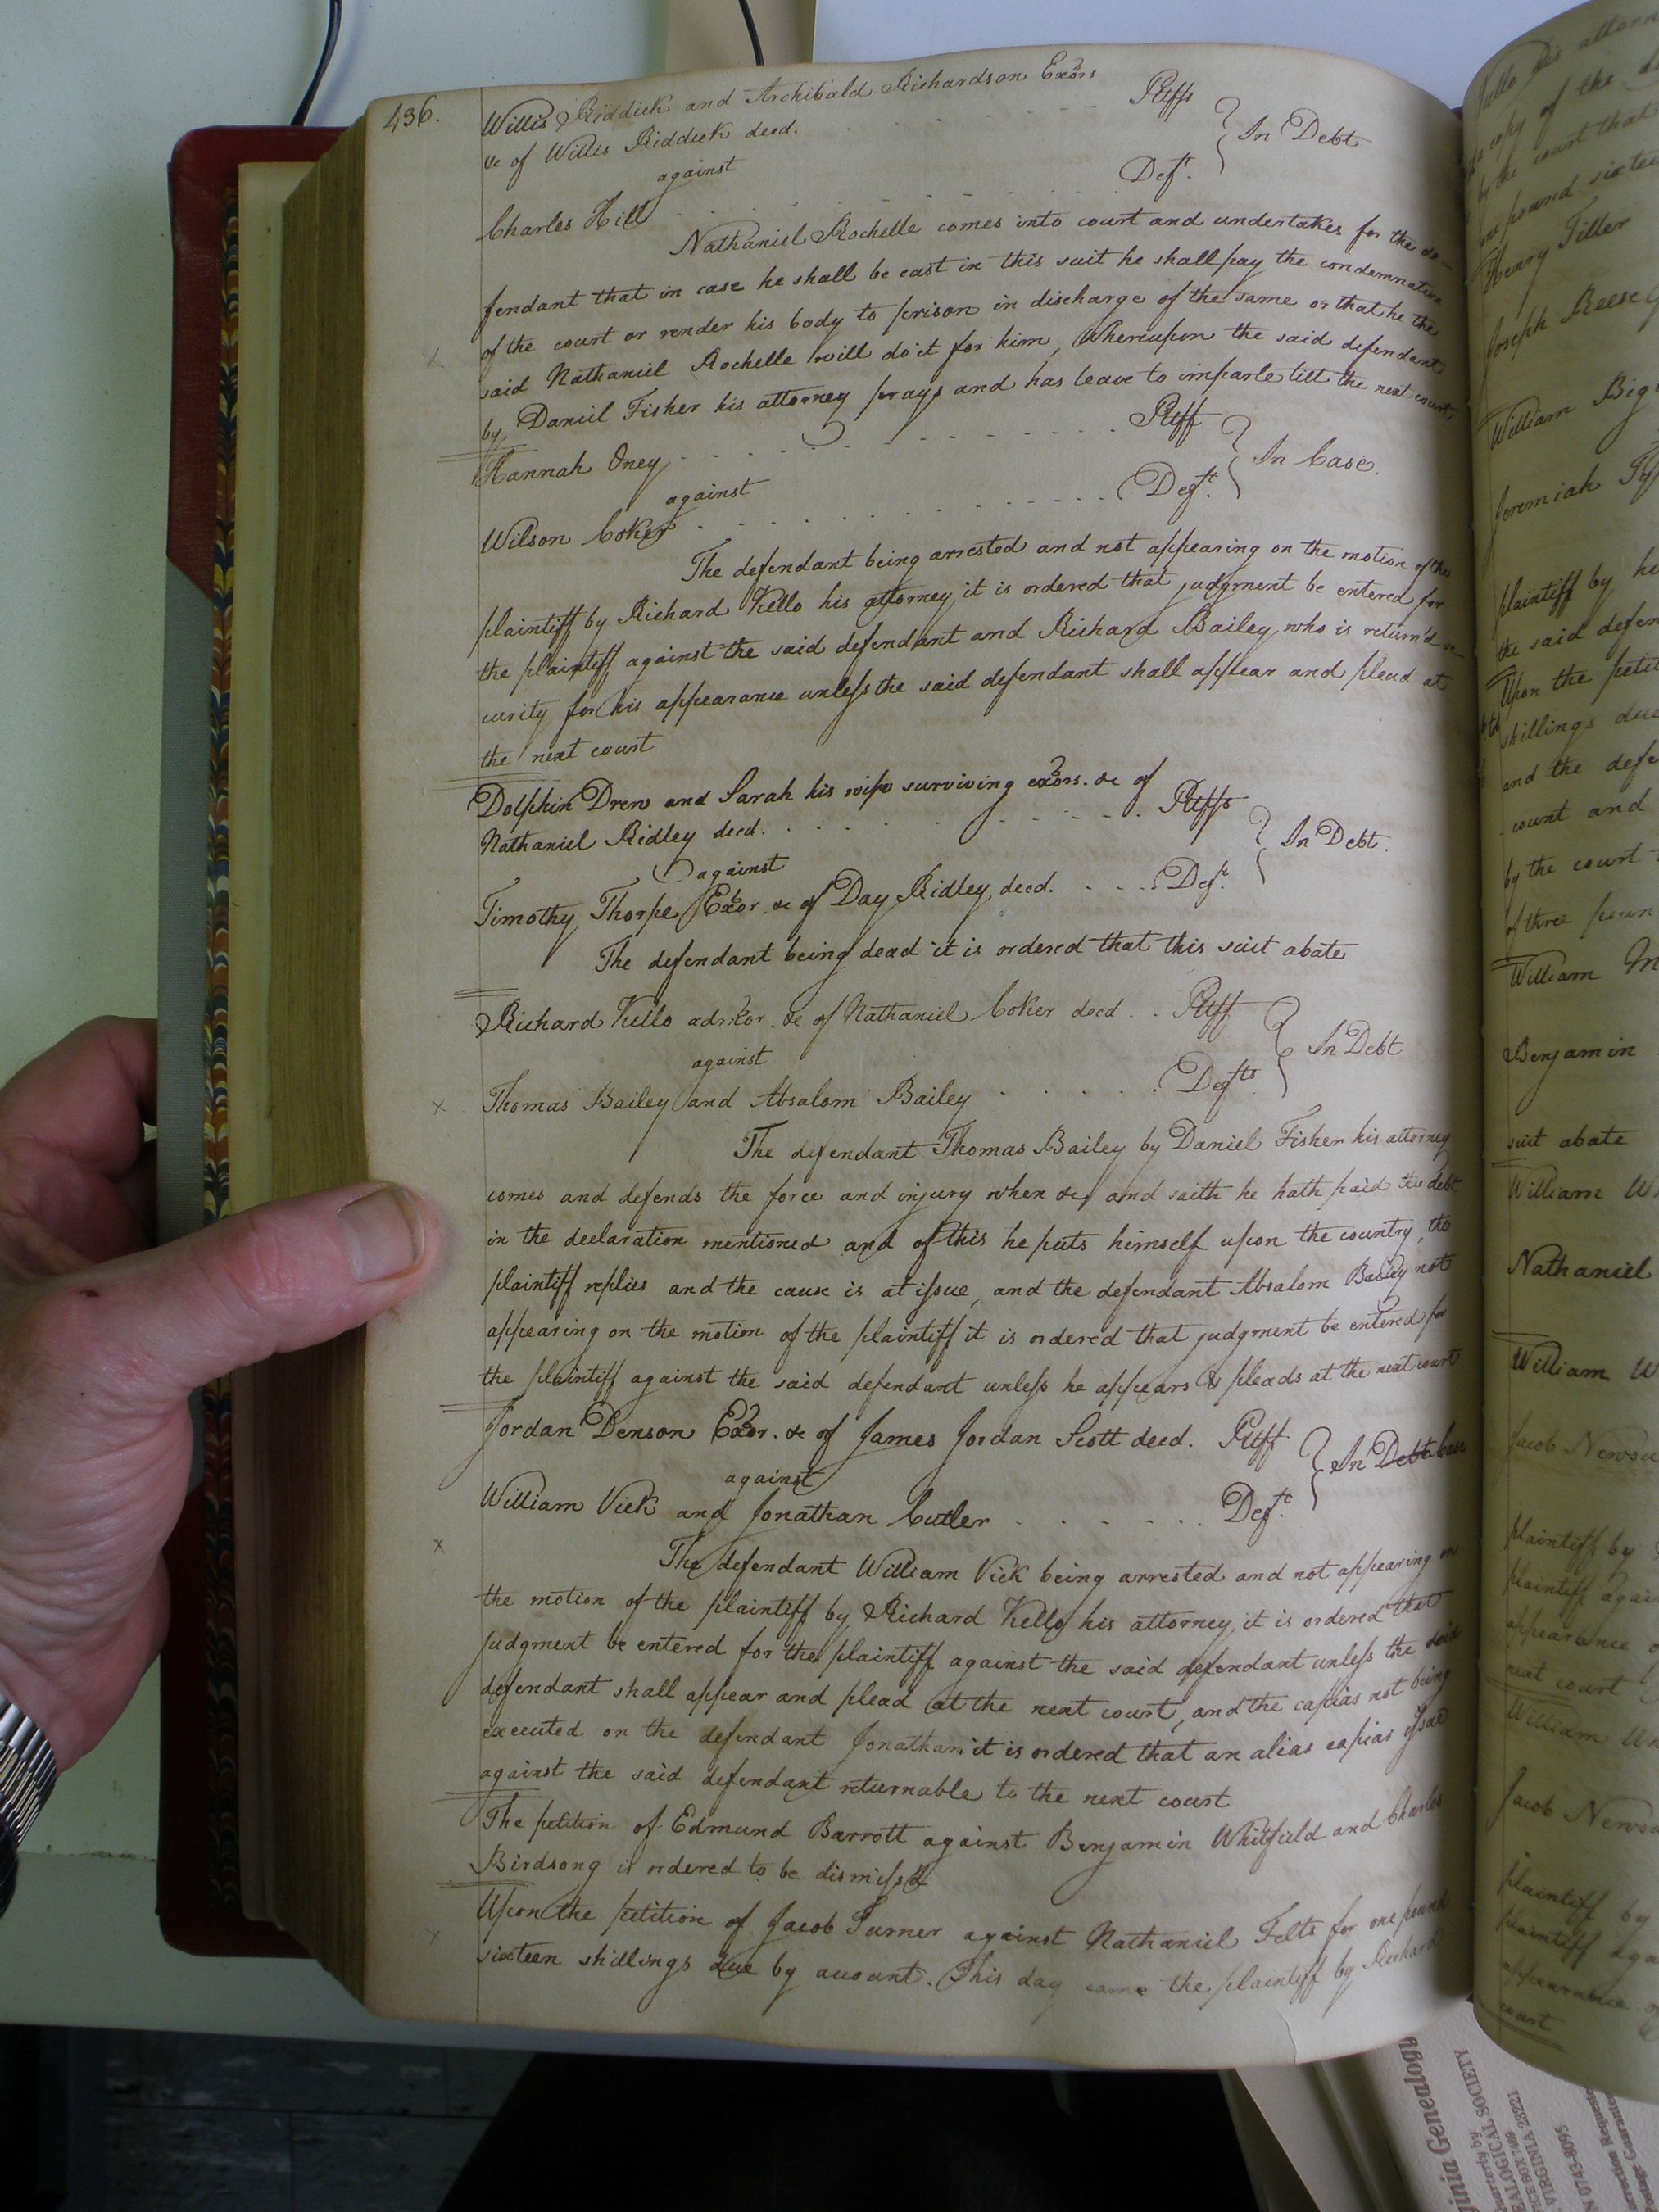 436.
Willis Riddick and Archibald Richardson Exors
&c of Willis Riddick decd. Pltffs
against
In Debt
Charles Hill Deft.
Nathaniel Rochelle comes into court and undertakes for the de-
fendant that in case he shall be cast in this suit he shall pay the condemnation
of the court or render his body to prison in discharge of the same or that he the
said Nathaniel Rochelle will do it for him, Whereupon the said defendant
by Daniel Fisher his attorney prays and has leave to imparle till the next court
Hannah Oney Pltff
against
In Case.
Wilson Coker Deft.
The defendant being arrested and not appearing on the motion of the
plaintiff by Richard Kello his attorney, it is ordered that judgment be entered for
the plaintiff against the said defendant and Richard Bailey who is return'd se-
curity for his appearance unless the said defendant shall appear and plead at
the next court
Dolphin Drew and Sarah his wife surviving exors. &c of
Nathaniel Ridley decd. Pltffs
against
In Debt.
Timothy Thorpe Exor. &c of Day Ridley decd. Deft.
The defendant being dead it is ordered that this suit abate
Richard Kello admor. &c of Nathaniel Coker decd. Pltff
against
In Debt
x Thomas Bailey and Absalom Bailey Defts
The defendant Thomas Bailey by Daniel Fisher his attorney
comes and defends the force and injury when &c, and saith he hath paid the debt
in the declaration mentioned and of this he puts himself upon the country, the
plaintiff replies and the cause is at issue, and the defendant Absalom Bailey not
appearing on the motion of the plaintiff it is ordered that judgment be entered for
the plaintiff against the said defendant unless he appears & pleads at the next court
Jordan Denson Exor. &c of James Jordan Scott decd. Pltff
against
In Debt Case
William Vick and Jonathan Cutler Deft.
x
The defendant William Vick being arrested and not appearing on
the motion of the plaintiff by Richard Kello his attorney, it is ordered that
judgment be entered for the plaintiff against the said defendant unless the said
defendant shall appear and plead at the next court, and the capias not being
executed on the defendant Jonathan it is ordered that an alias capias issue
against the said defendant returnable to the next court
The petition of Edmund Barrott against Benjamin Whitfield and Charles
Birdsong is ordered to be dismiss'd
Upon the petition of Jacob Turner against Nathaniel Felts for one pound
sixteen shillings due by account. This day came the plaintiff by Richard
Kello his attorn
a copy of the
by the court that
pound sixteen
Henry Tiller
Joseph Reese
William
Jeremiah
plaintiff by hi
the said defen
Upon the petit
shillings due
and the defe
count and
by the court
of three poun
William M
Benjamin
suit abate
William W
Nathaniel
William W
Jacob Newso
plaintiff by
plaintiff agai
appearance o
next court
William W
Jacob Newso
plaintiff by
plaintiff aga
appearance of
court
ginia Genealogy
quarterly by
EALOGICAL SOCIETY
ICE BOX 7469
VIRGINIA 23221
N 0743-8095
rrection Requeste
Postage Guarantee